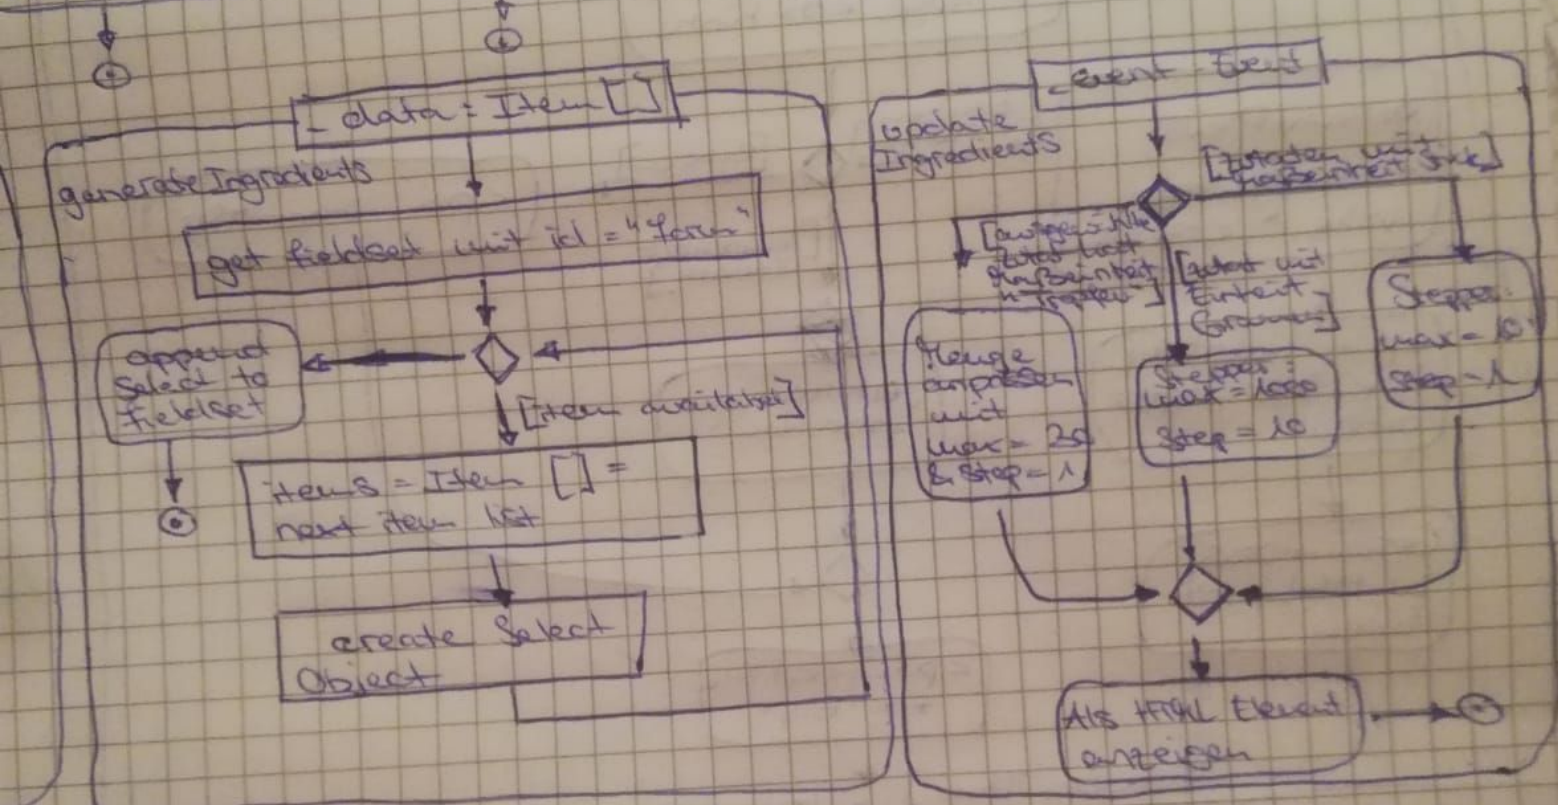 _data: Item []
generateIngredients
get fieldset mit id = "Form"
append
Select to
fieldset
[item available]
items = Item [] =
next item list
create Select
Object
_event: Event
update
Ingredients
[Zutaten mit
Maßeinheit Stück]
Zutat hat
Maßeinheit
[Zutat mit
Einheit
Gramm]
Menge
anpassen
mit
max = 20
& Step = 1
Stepper:
max = 1000
Step = 10
Stepper:
max = 10
step = 1
Als HTML Element
anzeigen